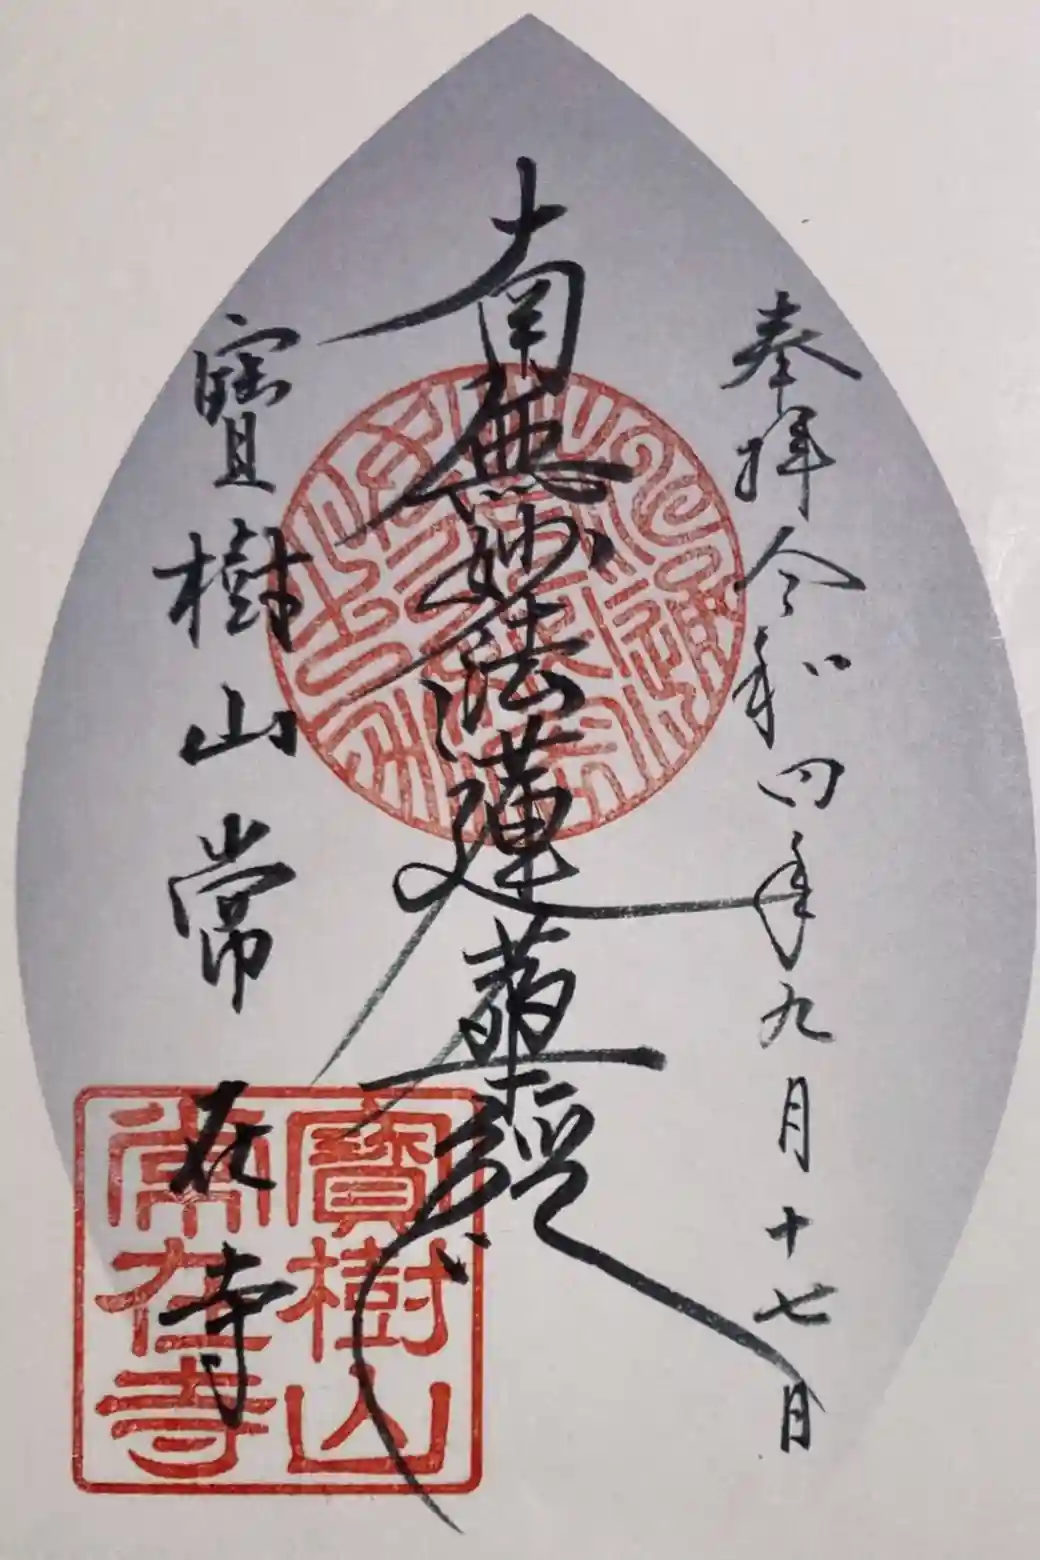 奉拝 令和四年九月十七日
南無妙法蓮華經
寶樹山常在寺
寶樹山
常在寺